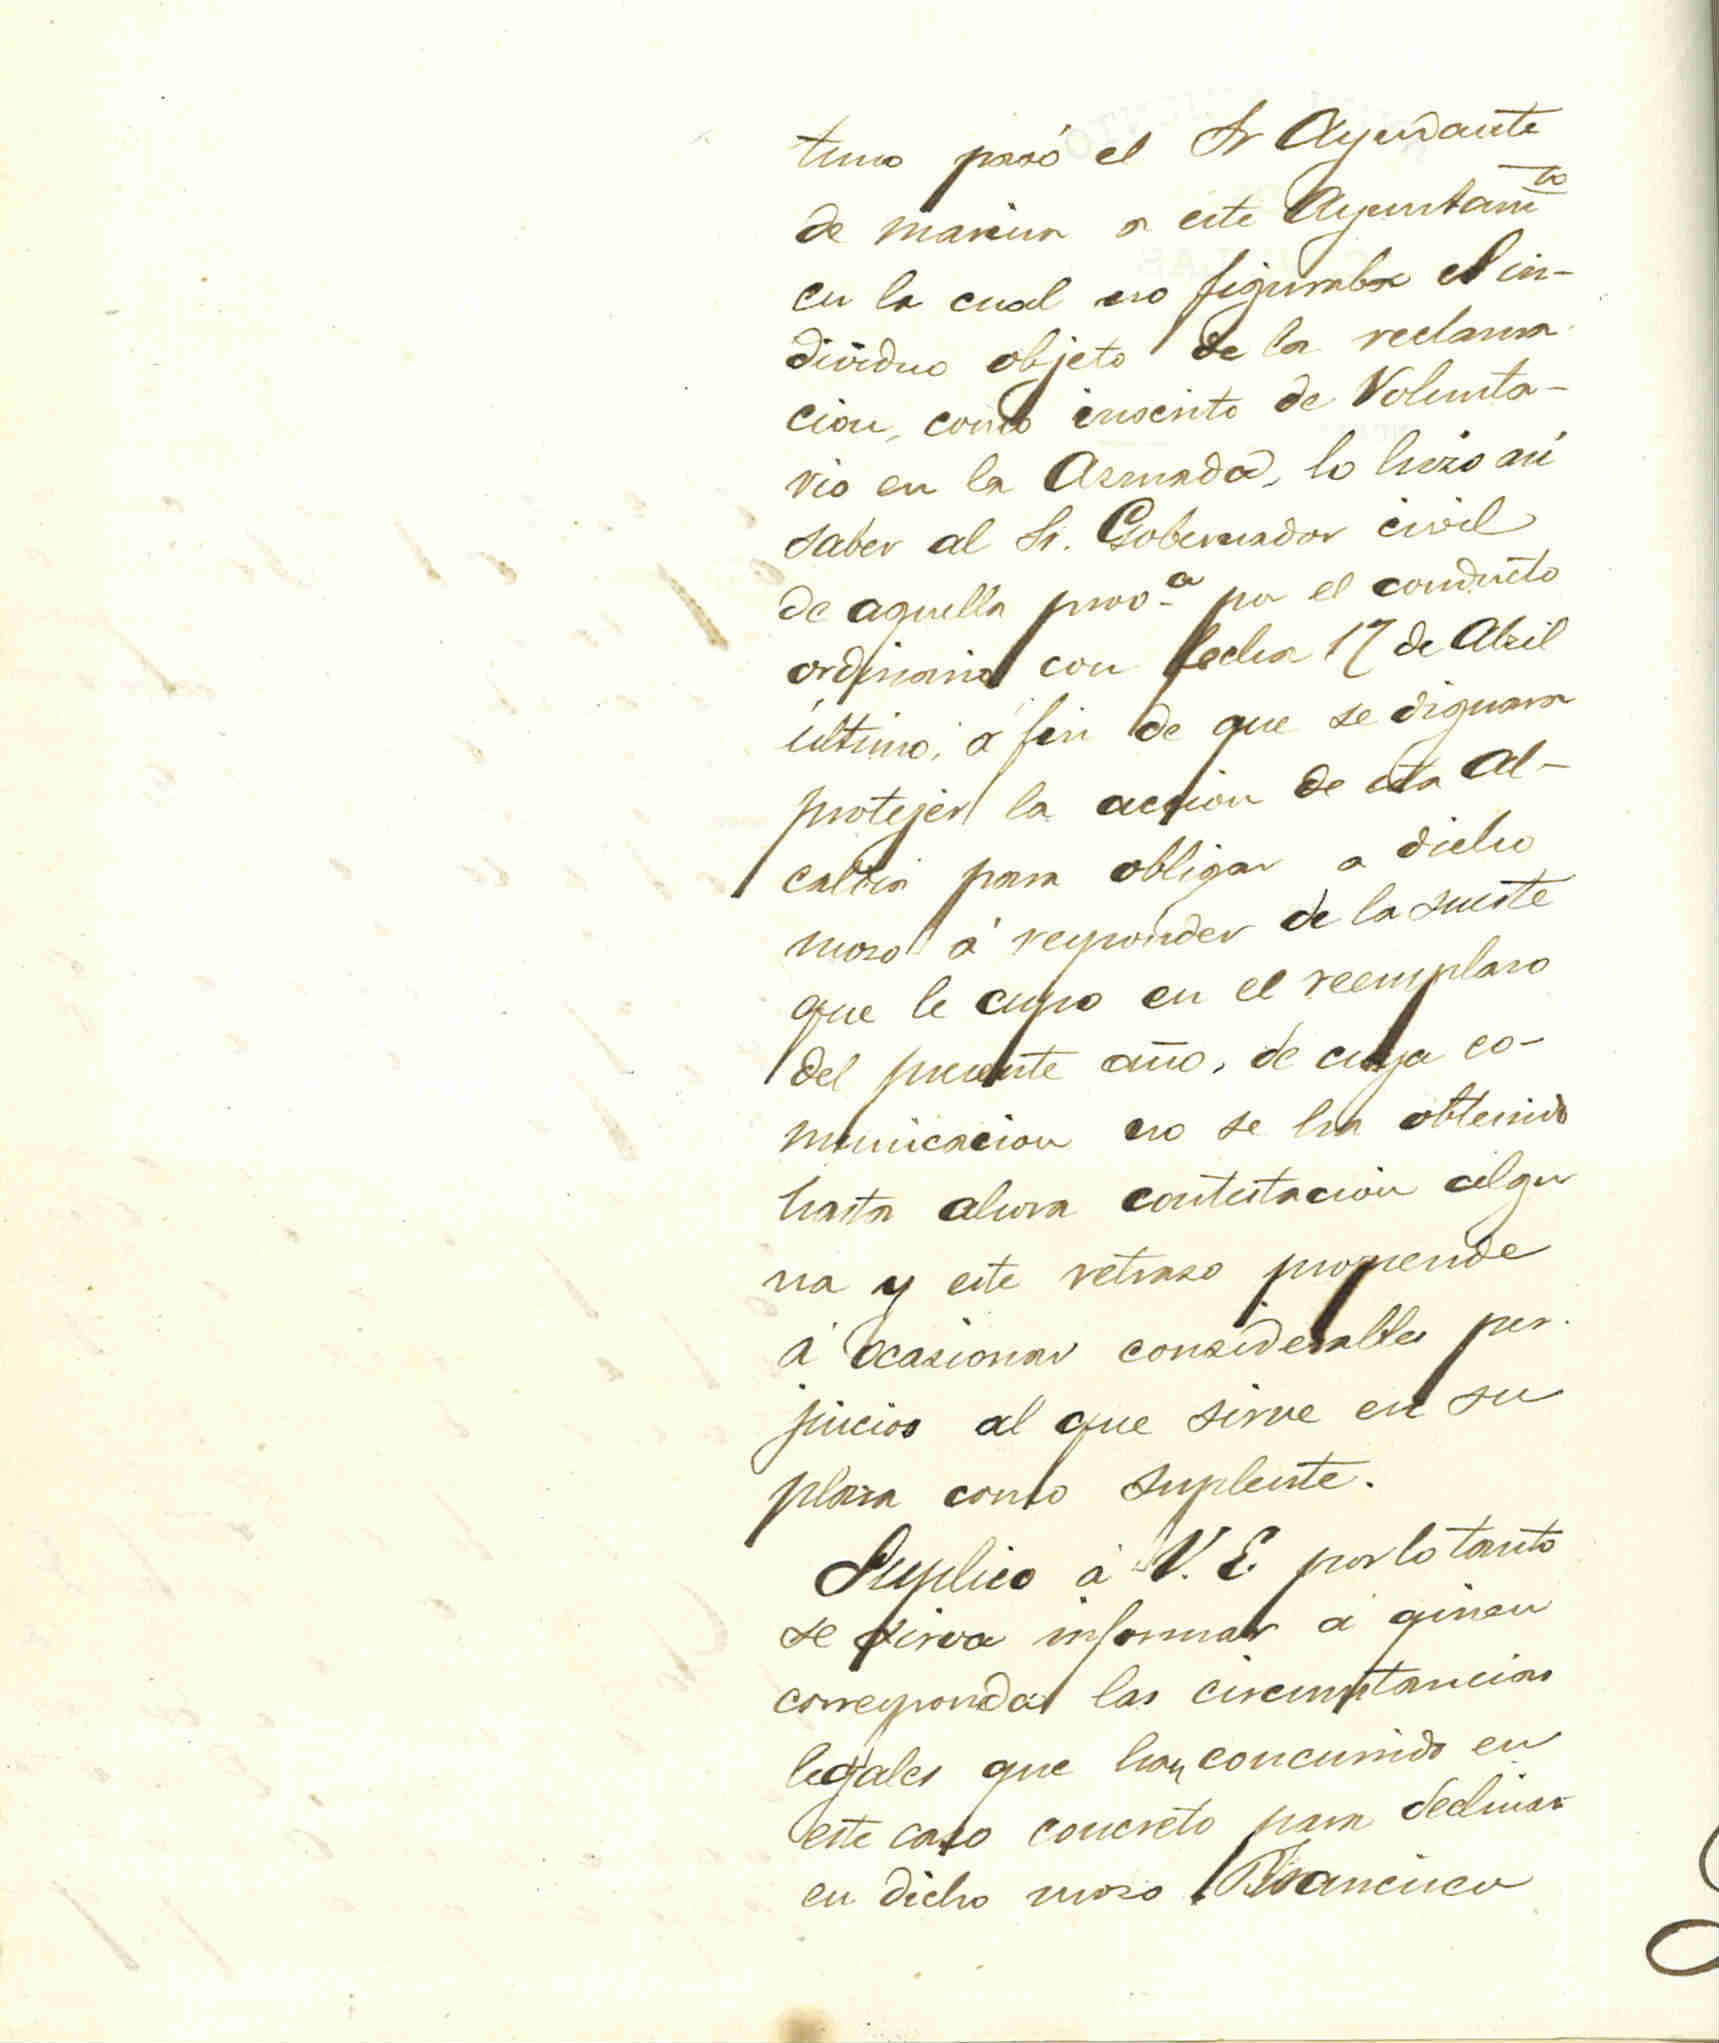 tuno pasó el Sr Ayudante
de marina a este Ayuntamto
en la cual no figuraba el in-
dividuo objeto de la reclama
cion, como inscrito de Volunta-
rio en la Armada, lo hizo así
saber al Sr. Gobernador civil
de aquella prova por el conducto
ordinario con fecha 17 de Abril
último, á fin de que se dignara
protejer la accion de esta Al-
caldia para obligar a dicho
mozo á responder de la suerte
que le cupo en el reemplazo
del presente año, de cuya co-
municacion no se ha obtenido
hasta ahora contestacion algu
na y este retraso propende
á ocasionar considerables per-
juicios al que sirve en su
plaza como suplente.
Suplico á V. E. por lo tanto
se sirva informar á quien
corresponda las circumstancias
legales que han concurrido en
este caso concreto para declinar
en dicho mozo Francisco